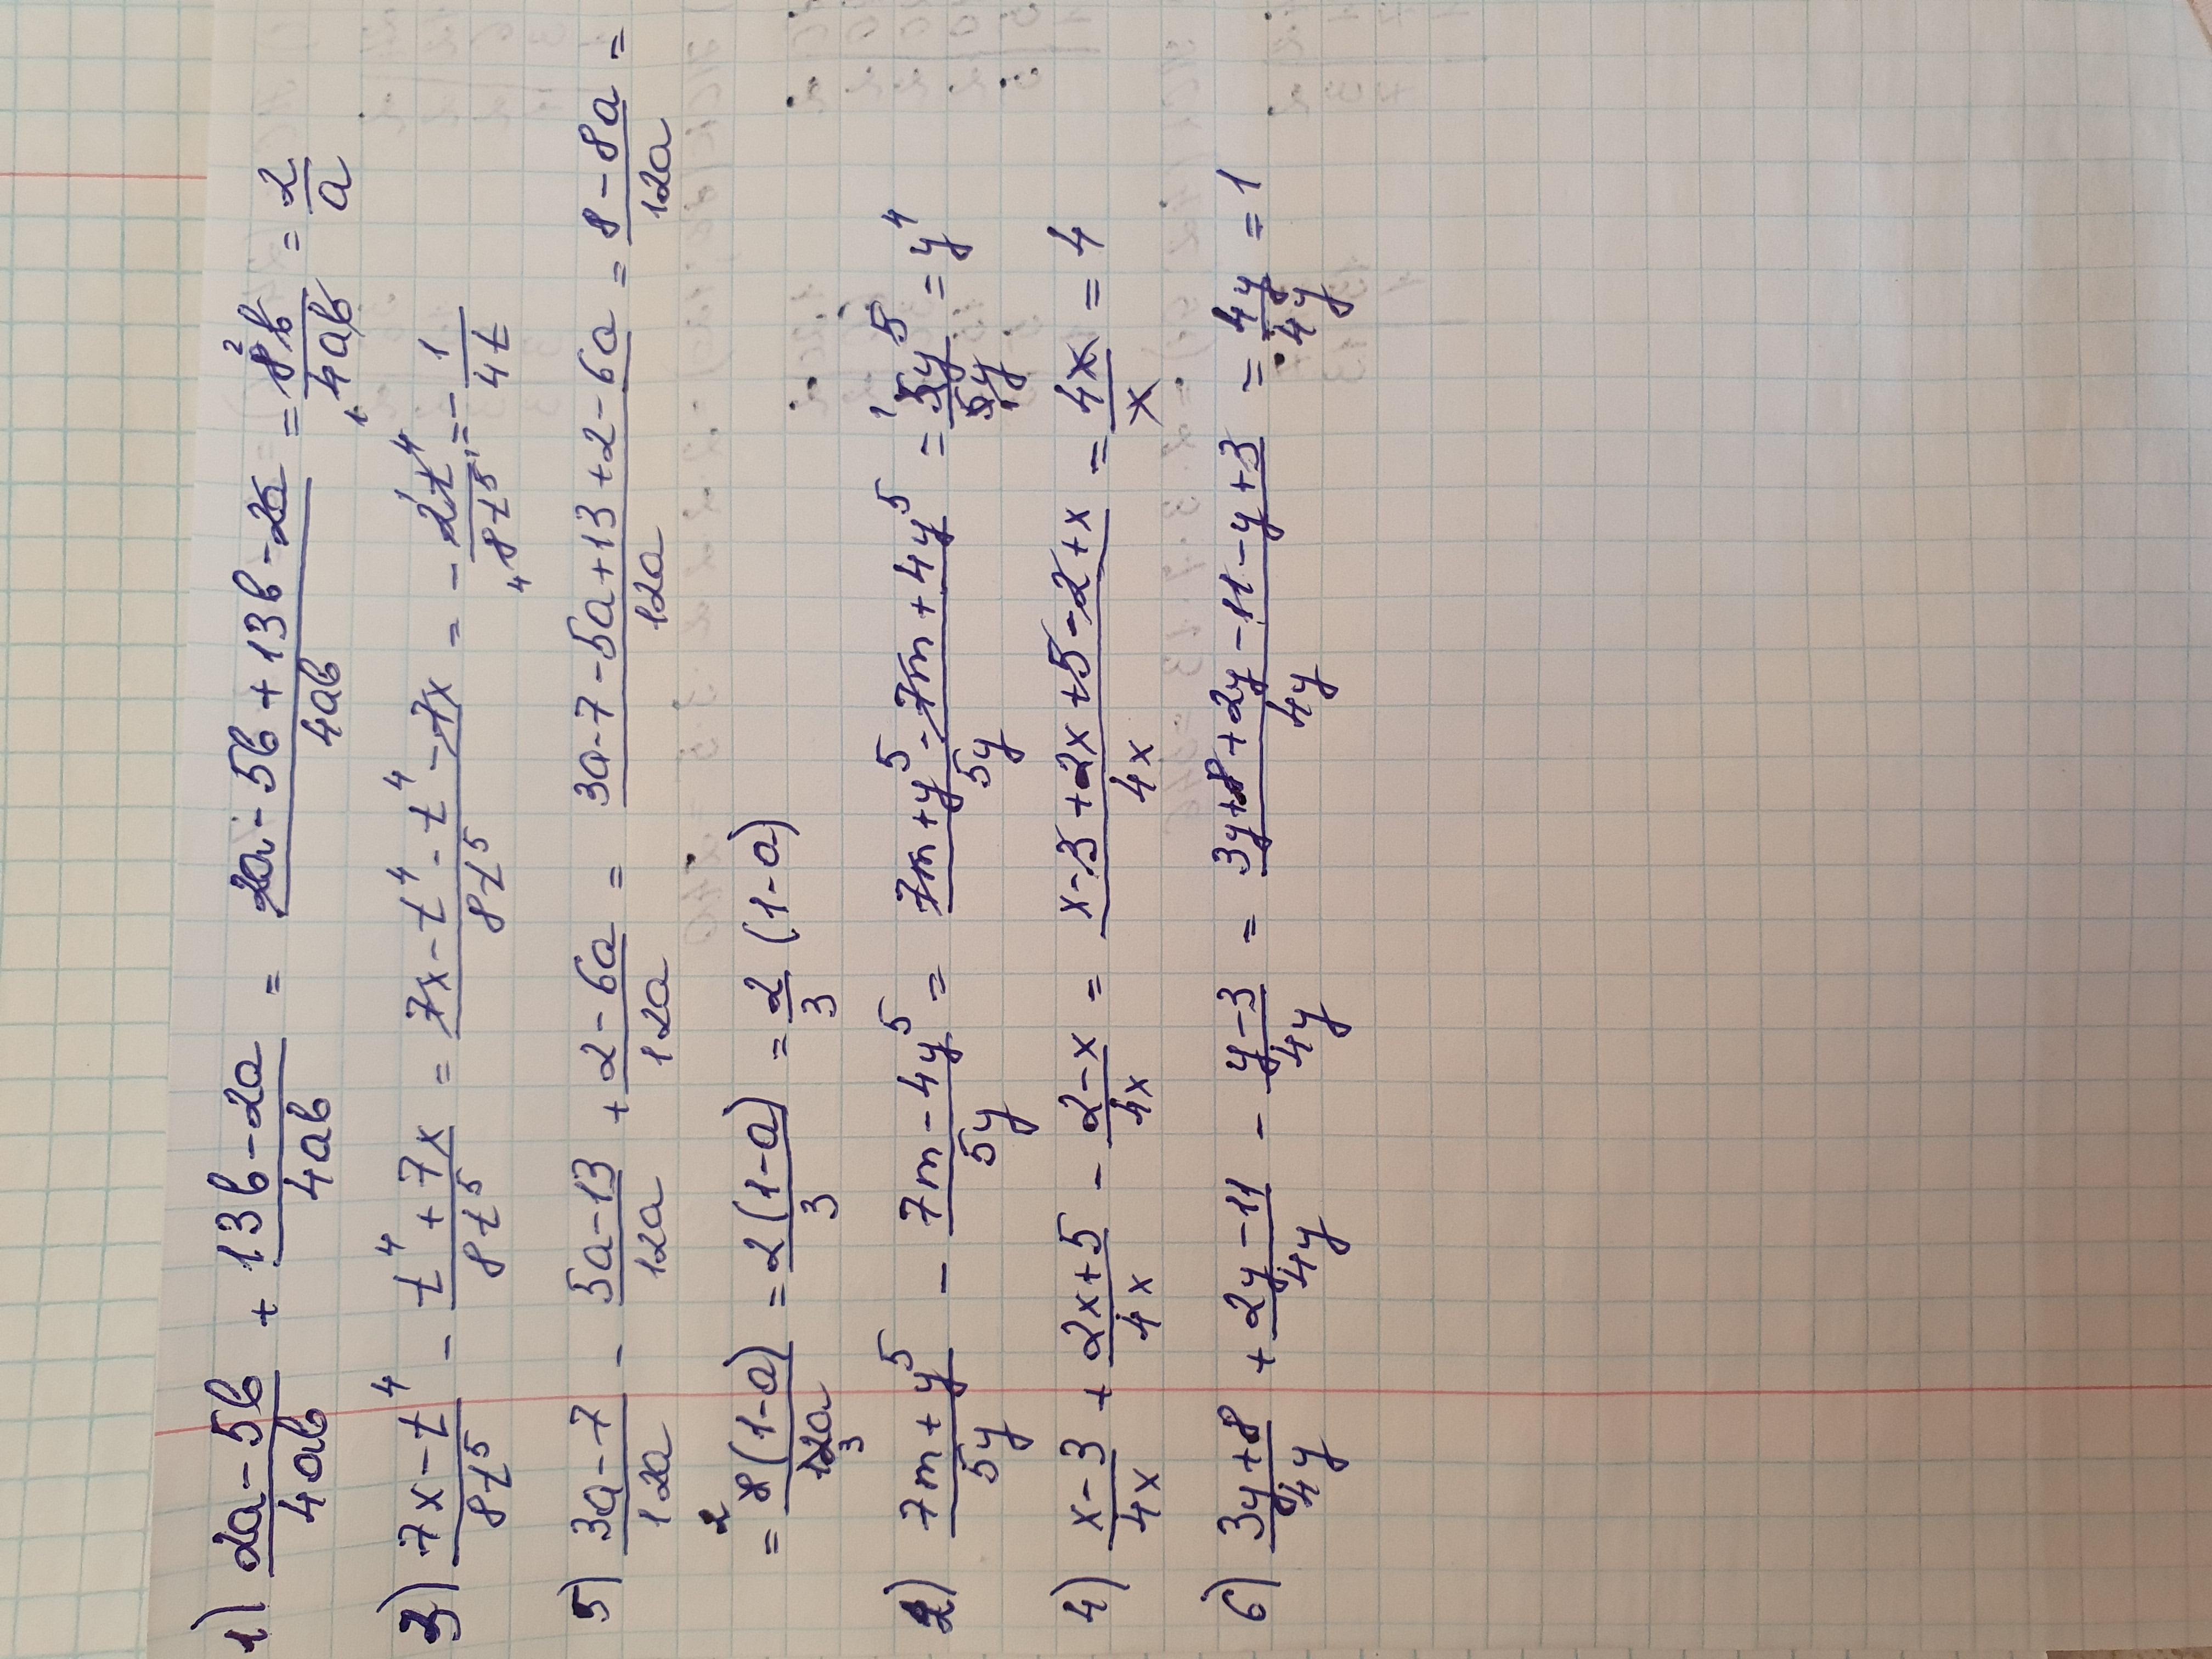 1) (2a-5b)/(4ab) + (13b-2a)/(4ab) = (2a-5b+13b-2a)/(4ab) = (8b)/(4ab) = 2/a
3) (7x-t⁴)/(8t⁵) - (t⁴+7x)/(8t⁵) = (7x-t⁴-t⁴-7x)/(8t⁵) = -(2t⁴)/(8t⁵) = -1/(4t)
5) (3a-7)/(12a) - (5a-13)/(12a) + (2-6a)/(12a) = (3a-7-5a+13+2-6a)/(12a) = (8-8a)/(12a) =
= (8(1-a))/(12a) = (2(1-a))/3 = 2/3 (1-a)
2) (7m+y⁵)/(5y) - (7m-4y⁵)/(5y) = (7m+y⁵-7m+4y⁵)/(5y) = (5y⁵)/(5y) = y⁴
4) (x-3)/(4x) + (2x+5)/(4x) - (2-x)/(4x) = (x-3+2x+5-2+x)/(4x) = (4x)/x = 4
6) (3y+8)/(4y) + (2y-11)/(4y) - (y-3)/(4y) = (3y+8+2y-11-y+3)/(4y) = (4y)/(4y) = 1